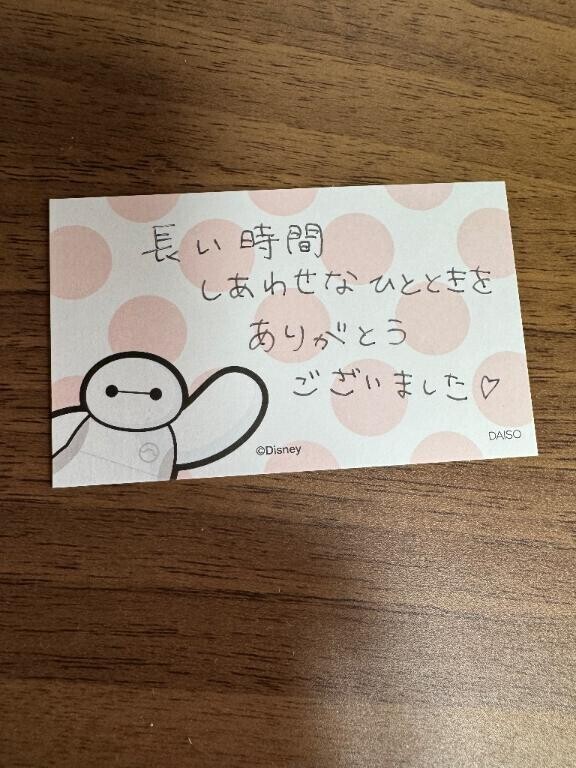 長い時間
しあわせなひとときを
ありがとう
ございました♡
©Disney
DAISO